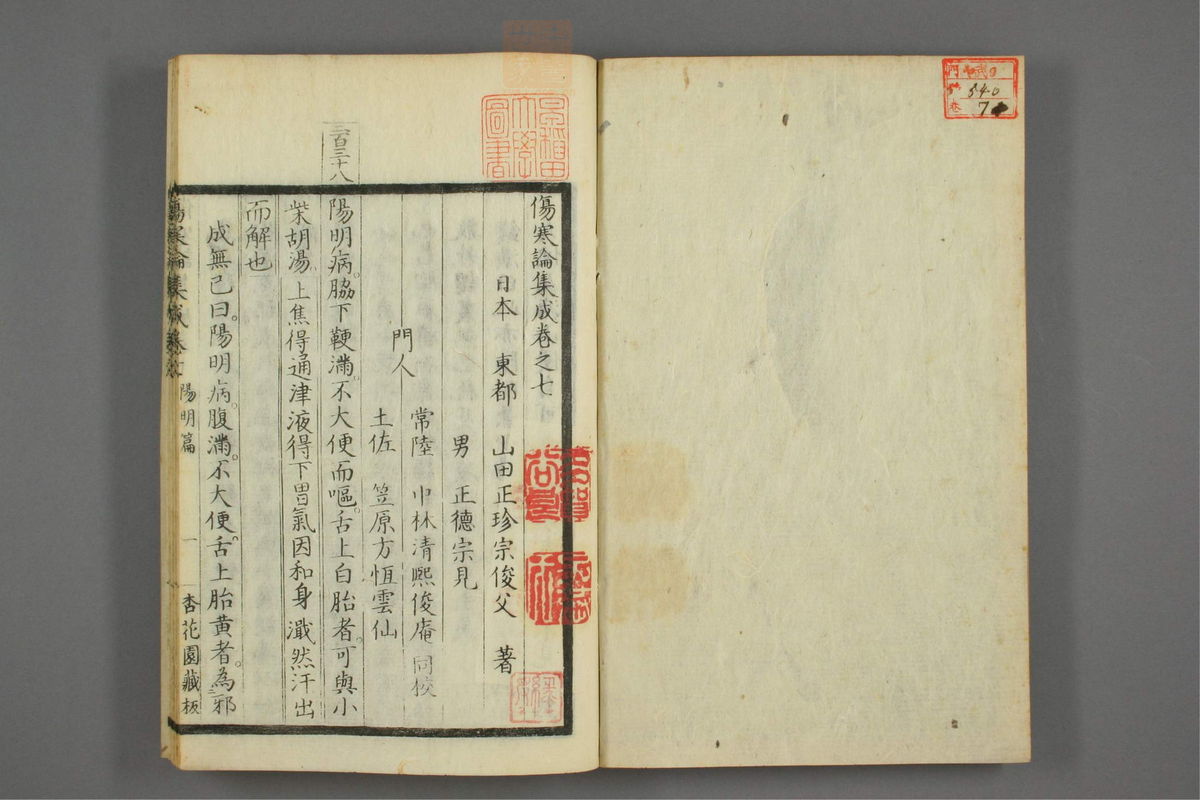 傷寒論集成卷之七
日本 東都 山田正珍宗俊父 著
男 正德宗見
門人
常陸 中林清熙俊庵 同校
土佐 笠原方恒雲仙
三百三十八
陽明病。脇下鞕滿。不大便而嘔。舌上白胎者。可與小
柴胡湯。上焦得通津液得下胃氣因和身濈然汗出
而解也
成無己曰。陽明病。腹滿。不大便。舌上胎黄者。為邪
傷寒論集成卷之七
陽明篇
一
杏花園藏板
早稲田大學圖書
540
7